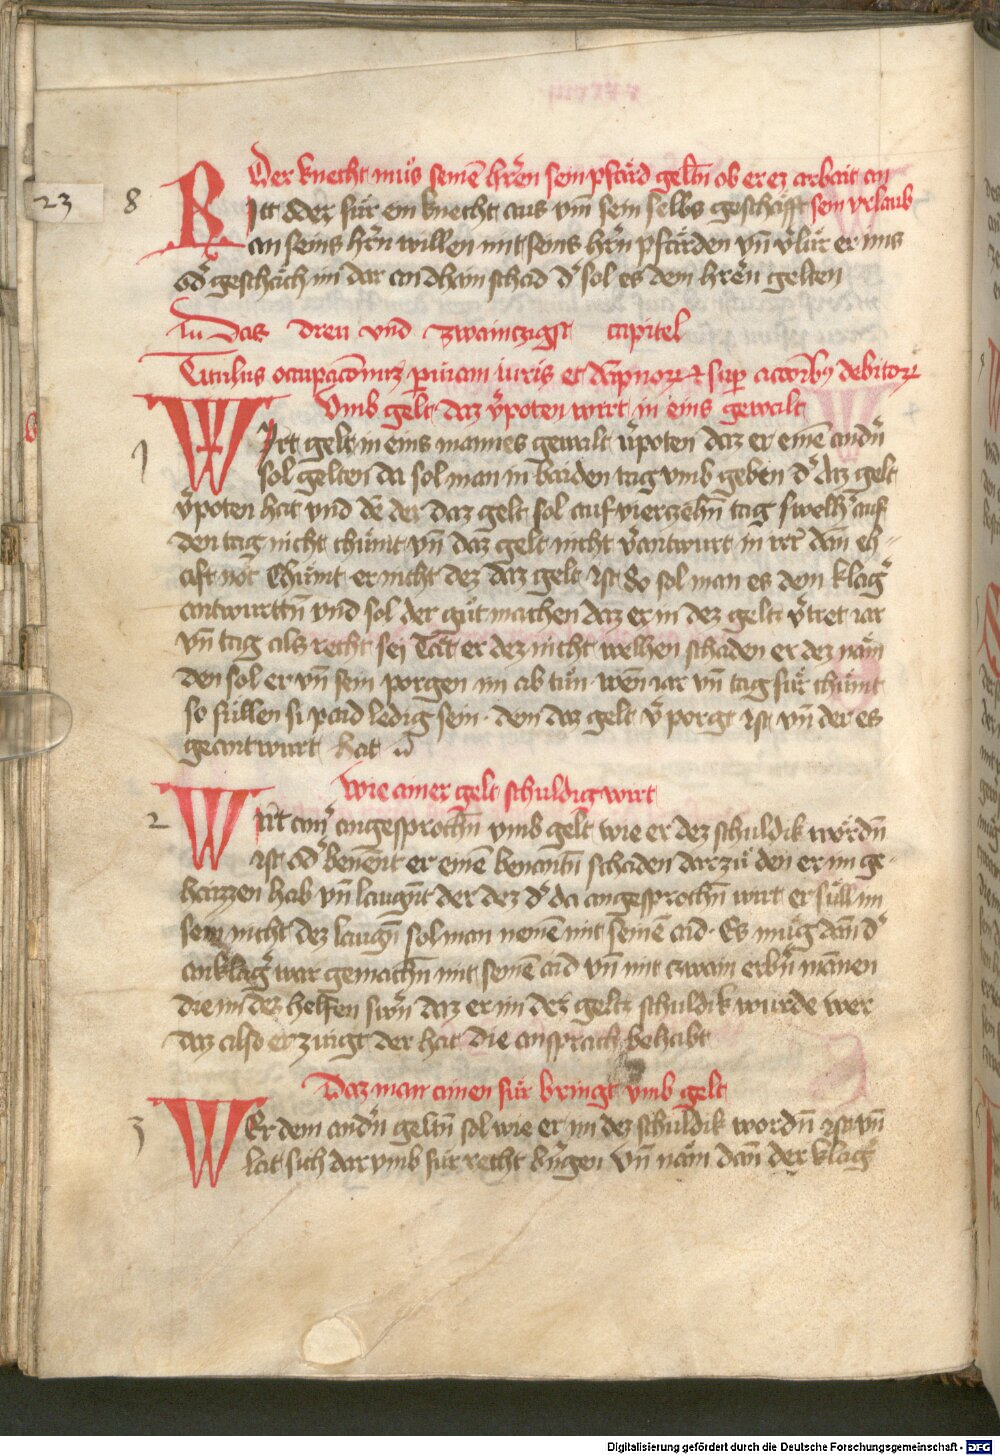 23 8
Der knecht mus̈ seinē hr̄en sein pfärd geltn̄ ob er ez arbait an
Ritt oder für ein knecht aus vm̄ sein selbs geschäfft sein vrlaub
an seins hr̄n willen mit seins hr̄n pfärden vn̄ v̓lür er ims
od̓ geschäch im dar an dhain schad d̓ sol es dem hr̄en gelten
Daz dreu vnd zwaintzigst capitel
Titulus occupac̄onum
Vmb gelt daz v̓poten wirt in eins gewalt
1 Wirt gelt in eins mannes gewalt v̓poten daz er einē andn̓
sol gelten da sol man in baiden tag vmb geben d̓ daz gelt
v̓poten hat vnd dē der daz gelt sol auf vierzehn̄ tag swelh̓ auf
den tag nicht chümt vn̄ daz gelt nicht v̓antwurt in irr dān eh-
aft not Chümt er nicht dez daz gelt ist so sol man es dem klag̓
antwurttn̄ vnd sol der güt machen daz er in dez geltz v̓tret iar
vn̄ tag als recht sei Tät er dez nicht welhen schaden er dez näm
den sol er vn̄ sein porgen im ab tün wen̄ iar vn̄ tag für chümt
so süllen si paid ledig sein dem daz gelt v̓porgt ist vn̄ der es
geantwurt hat
Wie ainer gelt schuldig wirt
2 Wirt ain̓ angesprochn̄ vmb gelt wie er dez schuldik wordn̄
ist od̓ benent er einē benantn̄ schaden darzü den er im ge-
haizzen hab vn̄ laugn̄t der dez d̓ da angesprochn̄ wirt er süll im
sein nicht dez laugn̄ sol man nemē mit seinē aid Es müg dān d̓
anklag̓ war gemachn̄ mit seinē aid vn̄ mit zwain erb̓n mannen
die im dez helfen swn̓ daz er im dez geltz schuldik wurde wer
daz also erzeugt der hat die ansprach behabt
Daz man ainen für bringt vmb gelt
3 Wer dem andn̓ geltn̄ sol wie er im dez schuldik wordn̄ ist vn̄
lat sich darvmb für recht bringen vn̄ näm dān der klag̓
Digitalisierung gefördert durch die Deutsche Forschungsgemeinschaft - DFG